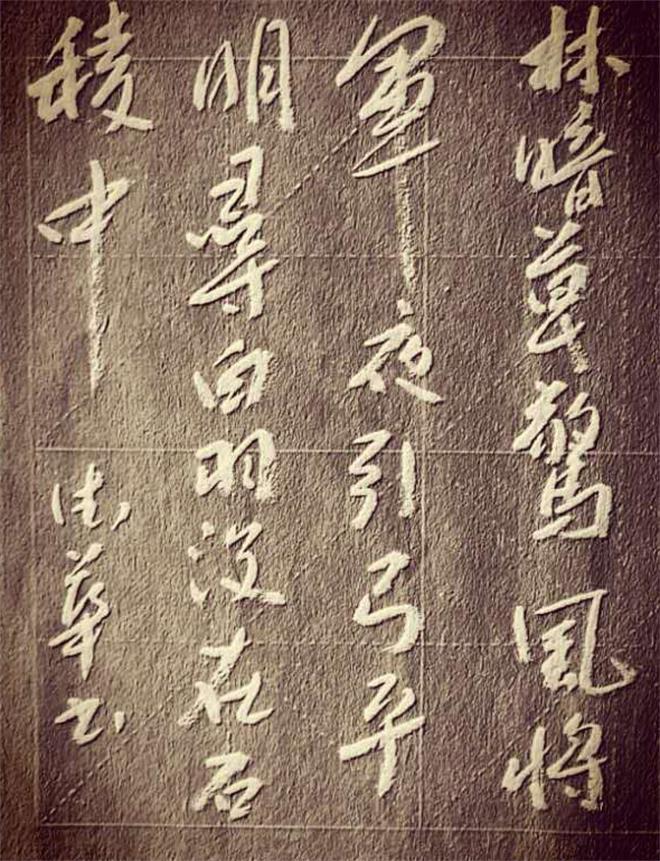 林暗草驚風将
軍夜引弓平
明尋白羽没在石
稜中
德華书